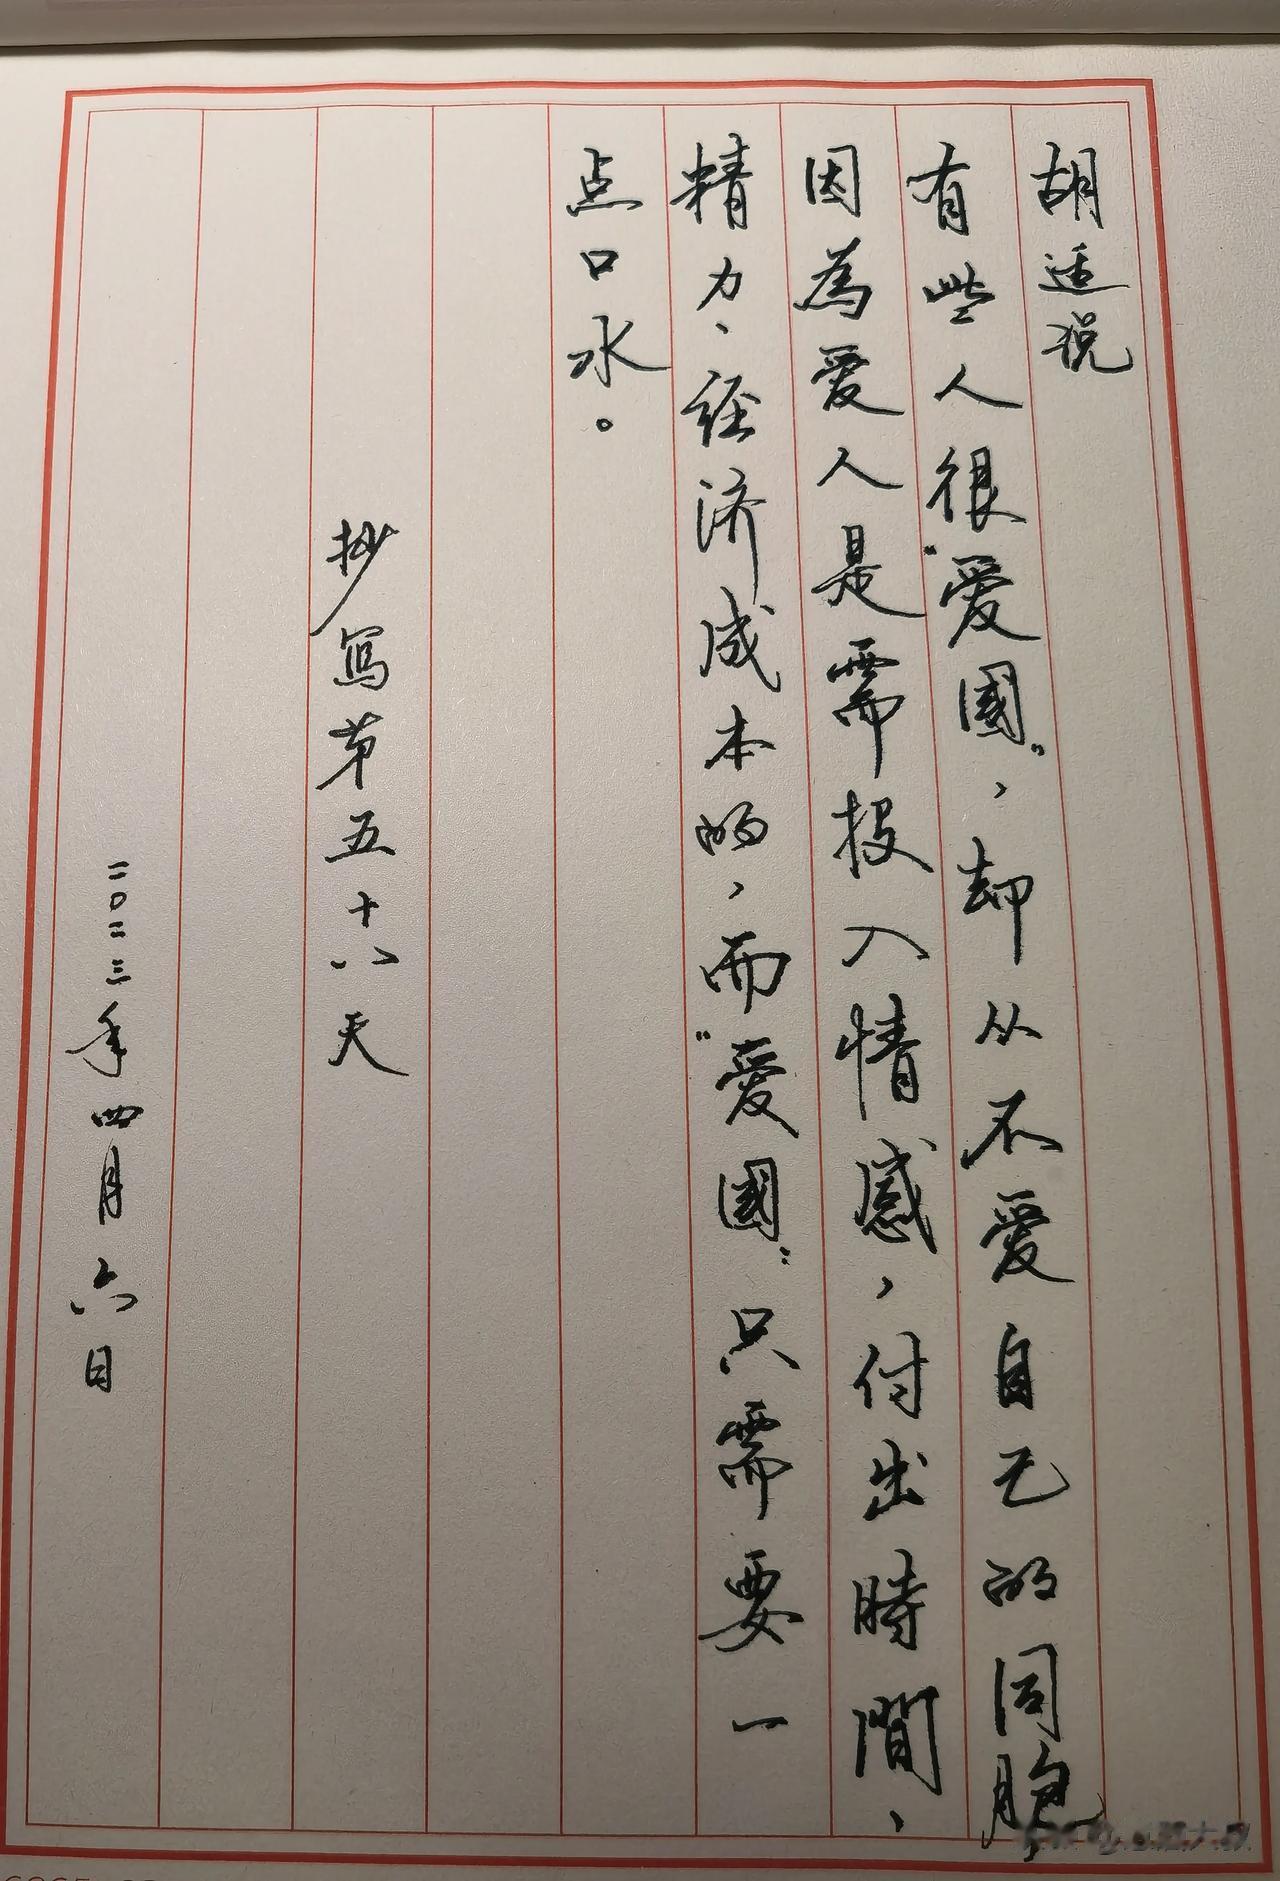 胡适说
有些人很“爱國”，却从不爱自己的同胞，
因為爱人是需投入情感，付出時間、
精力、经济成本的，而“爱國”只需要一
点口水。
抄写第五十八天
二〇二三年四月六日